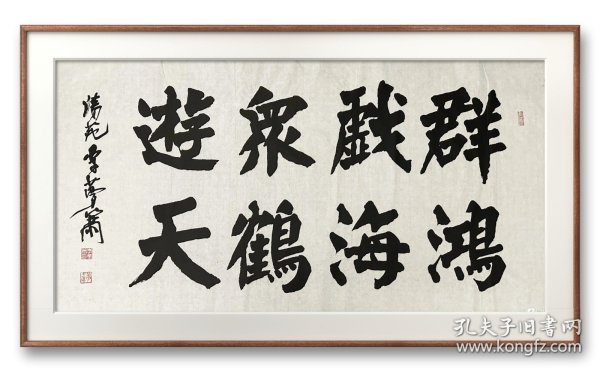 群鴻
戲海
眾鶴
遊天
孔夫子旧書网
www.kongfz.com